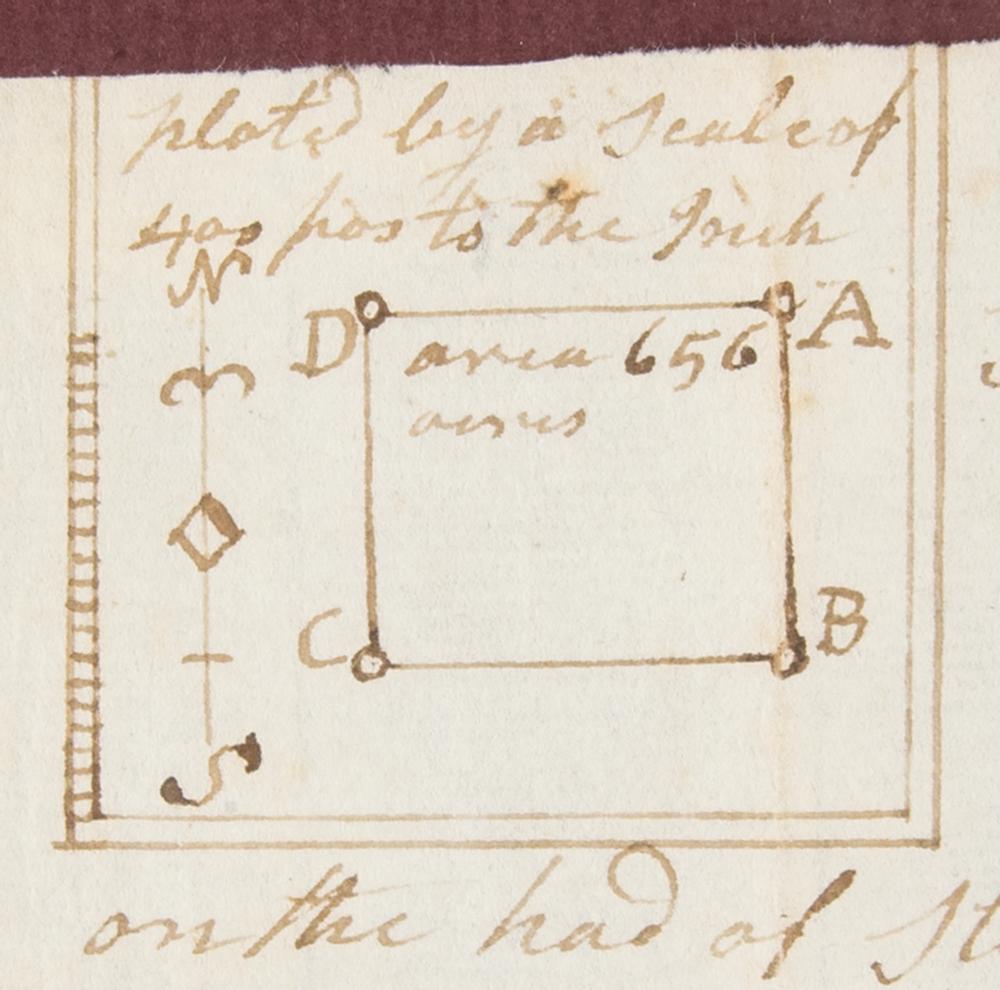 platd by a Scale of
400 pos to the Inch
N
D A
area 656
acres
C B
S
on the had of St